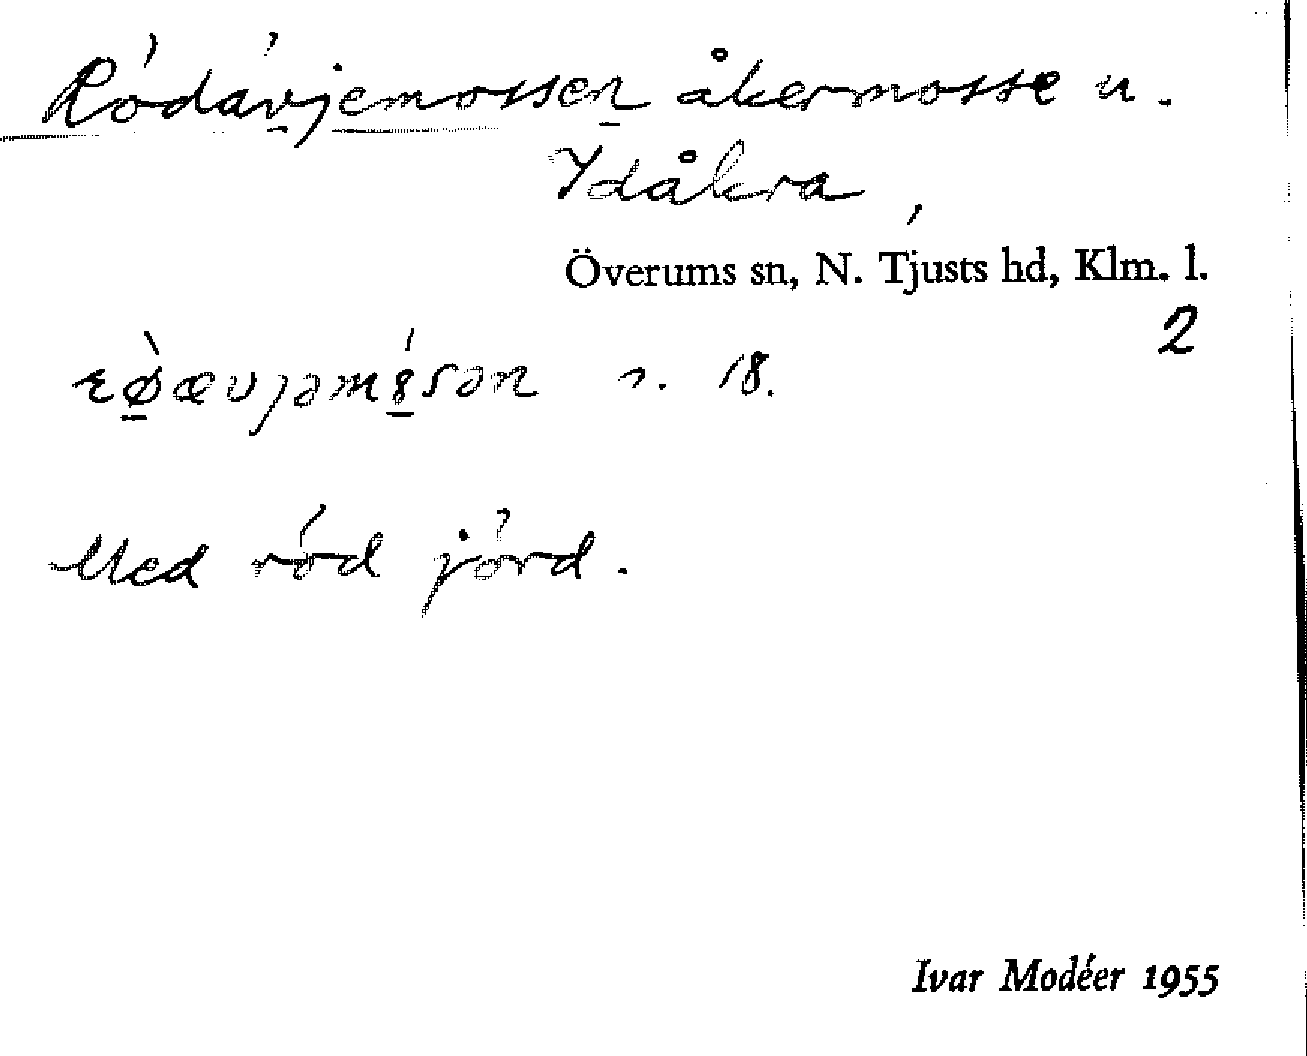 Rödävjemossen åkermosse u.
Ydåkra,
Överums sn, N. Tjusts hd, Klm. l.
2
s. 18.
Med röd jörd.
Ivar Modéer 1955